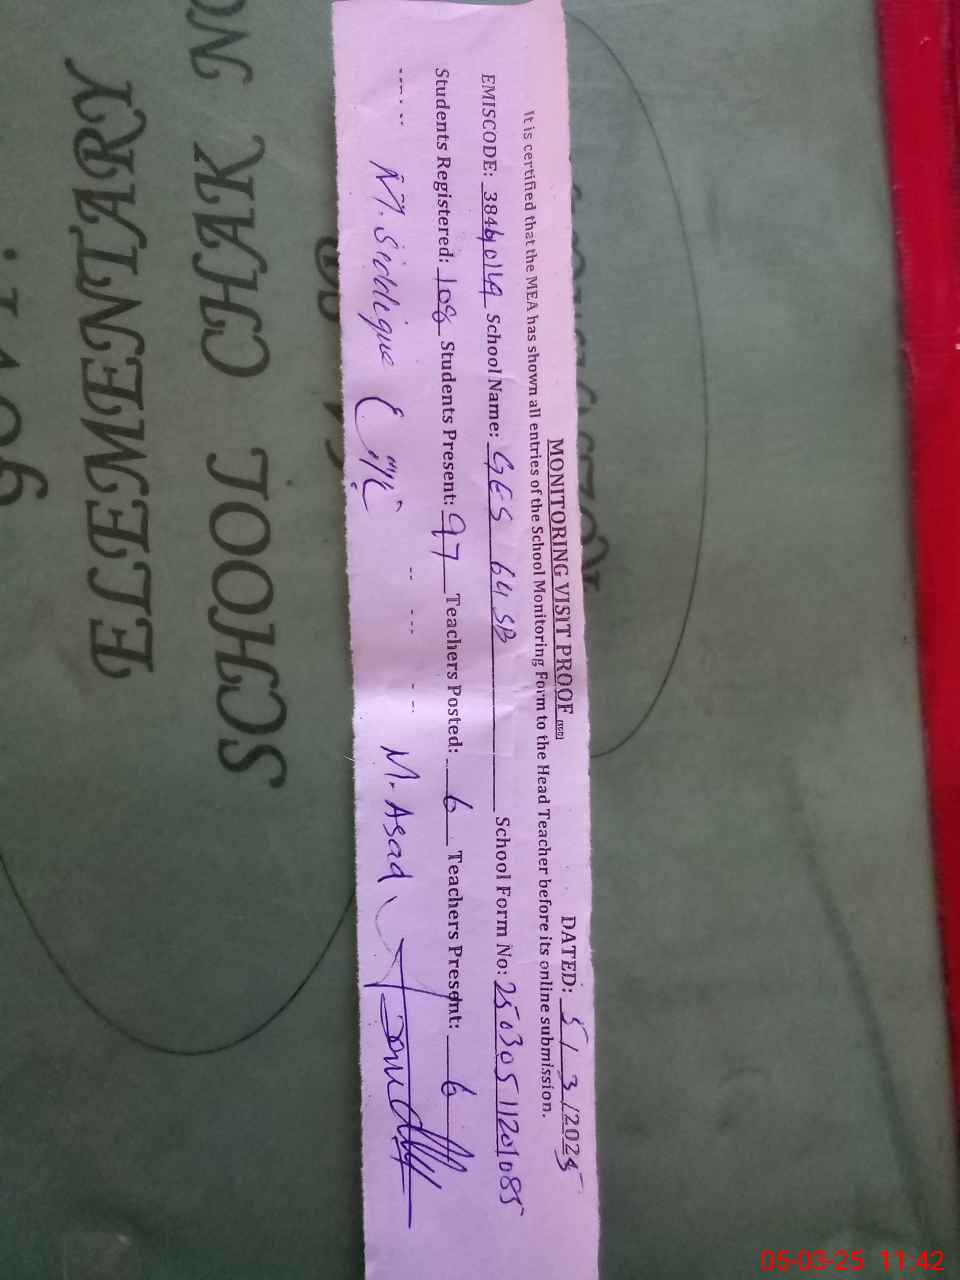 MONITORING VISIT PROOF DATED: 5/3/2025
It is certified that the MEA has shown all entries of the School Monitoring Form to the Head Teacher before its online submission.
EMISCODE: 38461 School Name: GES 64 SB School Form No: 250305 11201085
Students Registered: 108 Students Present: 97 Teachers Posted: 6 Teachers Present: 6
M. Siddique M. Asad
ELEMENTARY
SCHOOL CHAK NO
05-03-25 11:42